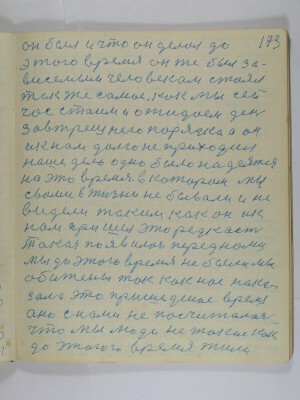 он был и что он делал до 173
этого время он же был за-
висемым человекам стоял
так же самое, как мы сей
час стаим и ожидаем ден
завтрешнего порядка а он
к нам долго не приходил
наше дело одно было надеятся
на это время в котором мы
своими в жизни не бывали и не
видели таким как он ик
нам пришел это редкаст
такая появилас передномы
мы до этого время не были мы
обижены так как нас нака-
зала это пришедшие время
ано с нами не посчиталас
что мы люди не такие как
до этого время жили